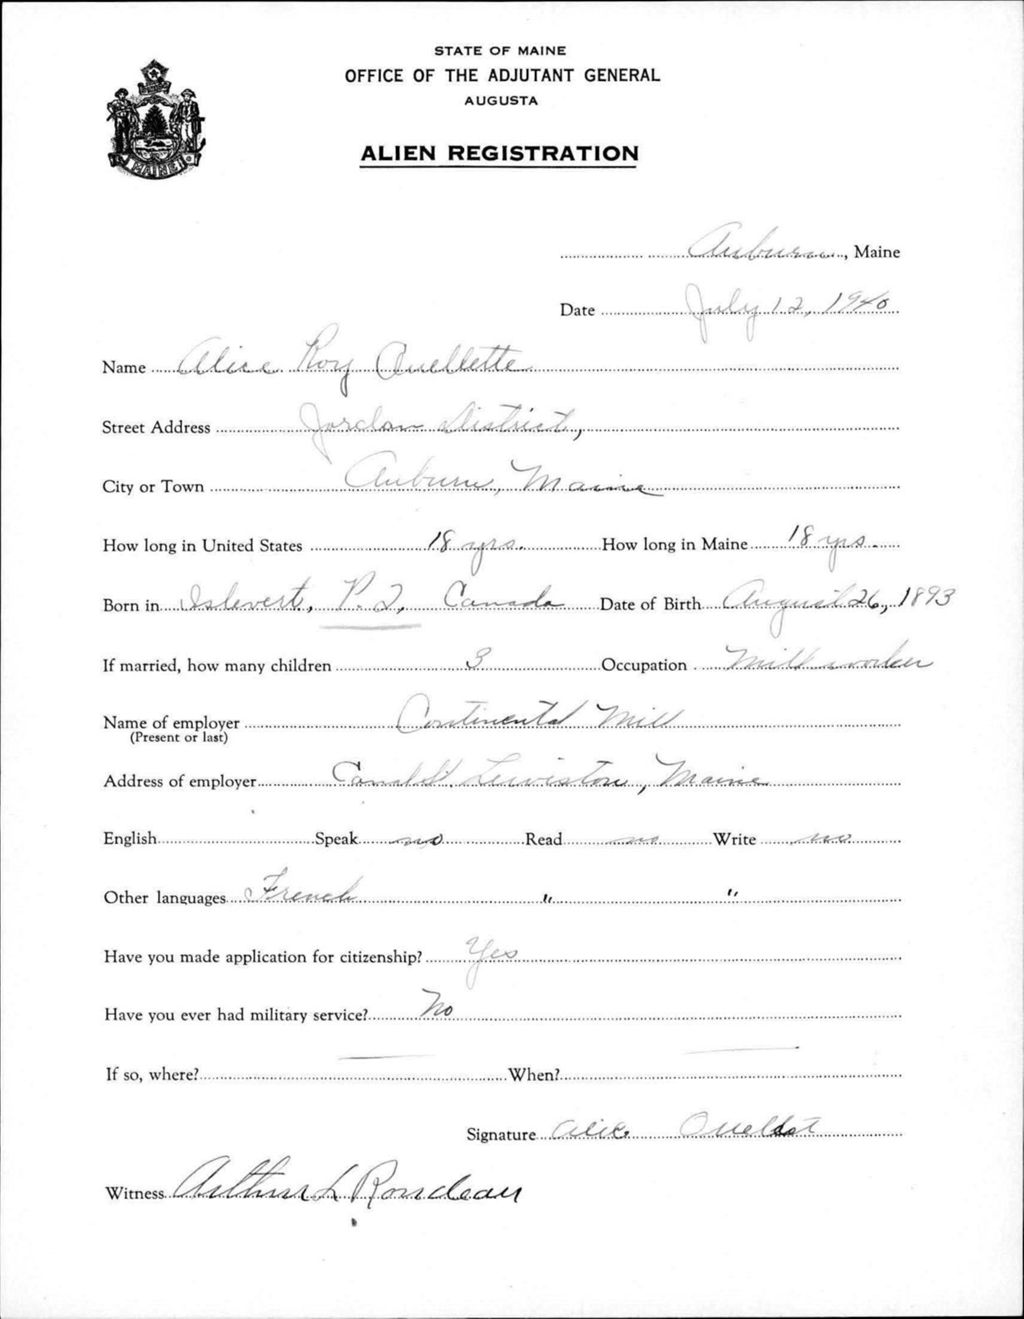 STATE OF MAINE
OFFICE OF THE ADJUTANT GENERAL
AUGUSTA
ALIEN REGISTRATION
MAINE
Auburn, Maine
Date July 12, 1940
Name Alice Roy Ouellette
Street Address Jordan District,
City or Town Auburn, Maine
How long in United States 18 yrs. How long in Maine 18 yrs.
Born in Islevert, P.Q. Canada Date of Birth August 26, 1893
If married, how many children 3 Occupation Mill worker
Name of employer Continental Mill
(Present or last)
Address of employer Lewiston, Maine
English Speak no Read no Write no
Other languages French " "
Have you made application for citizenship? Yes
Have you ever had military service? No
If so, where? — When? —
Signature Alice Ouellet
Witness Arthur L Rondeau